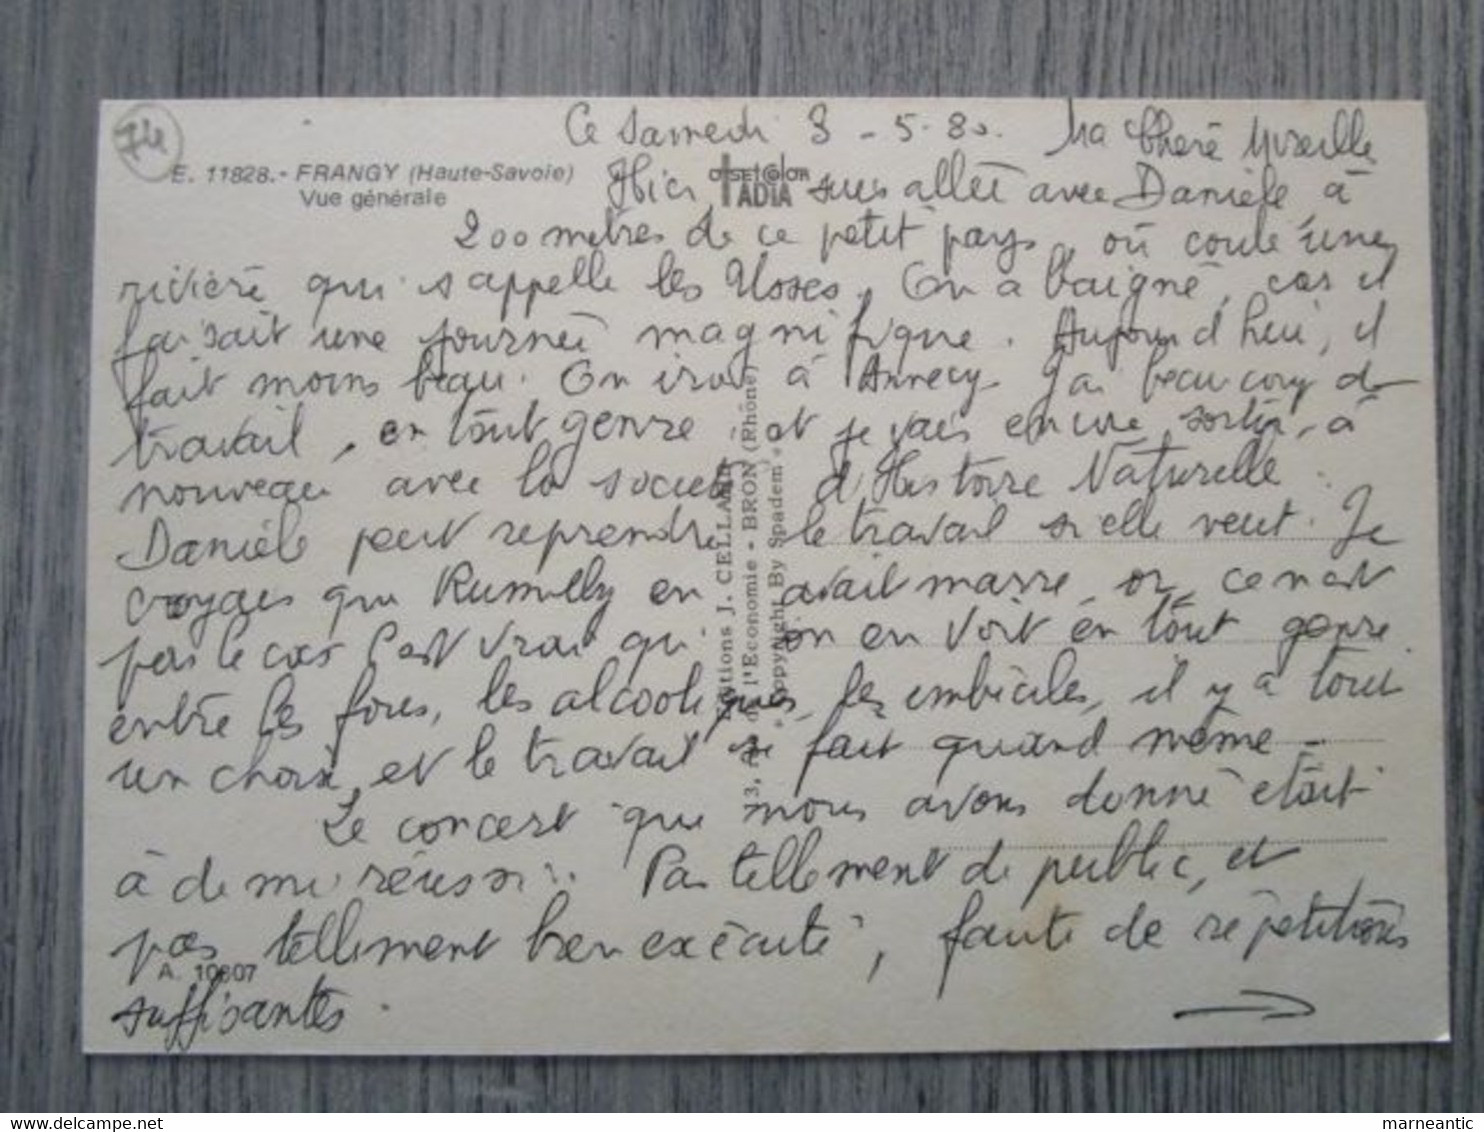 74
Ce Samedi 3 - 5 - 80. Ma Chere Mireille
E. 11828.- FRANGY (Haute-Savoie)
Vue générale
OFFSET COLOR
ADIA
Hier, suis allée avec Danièle à
200 mètres de ce petit pays, où coule une
rivière qui s'appelle les Usses. On a baigné, car il
faisait une journée magnifique. Aujourd'hui, il
fait moins beau. On ira à Annecy. J'ai beaucoup de
travail, en tout genre, et je vais encore sortir, à
nouveau avec la société d'Histoire Naturelle.
Danièle peut reprendre le travail si elle veut. Je
croyais que Rumilly en avait marre, or, ce n'est
pas le cas. C'est vrai qu'on en voit en tout genre
entre les fous, les alcooliques, les imbéciles, il y a tout
un choix, et le travail se fait quand même -
Le concert que nous avons donné était
à demi réussi. Pas tellement de public, et
pas tellement bien exécuté, faute de répétitions
suffisantes.
A. 10807
Editions J. CELLARD
3, de l'Economie - BRON (Rhône)
Copyright By Spadem
marneantic